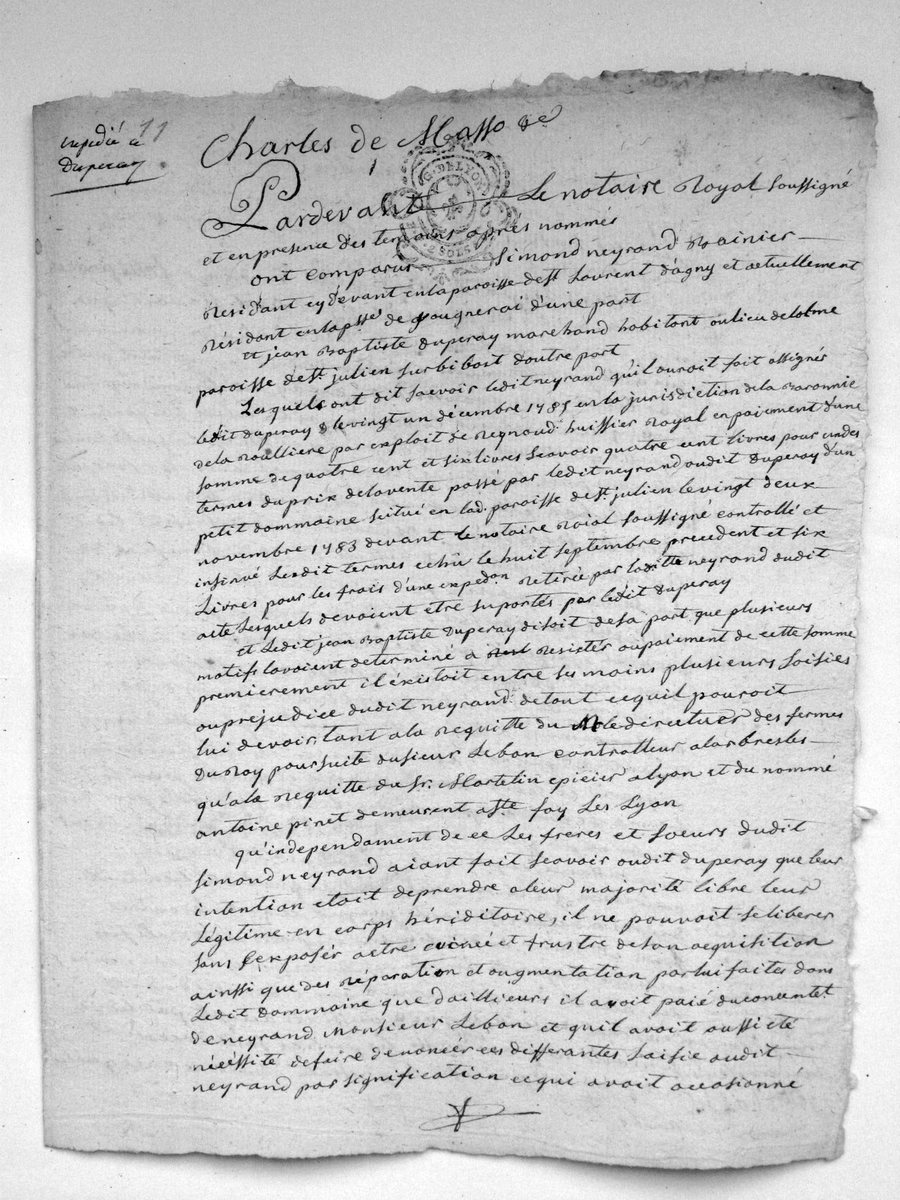 expedié a 11
Duperay
Charles de Masso &c
G. DE LYON
2 SOLS
Pardevant Le notaire Royal Soussigné
et en presence des temoins apres nommés
ont comparus Simond neyrand
Residant cydevant en la paroisse de St Laurent d'agny et actuellement
Résidant en la psse de d'une part
et jean Baptiste duperay marchand habitant au lieu de
paroisse de St. julien sur bibost d'autre part
Lesquels ont dit Scavoir ledit neyrand qu'il auroit fait assigner
ledit duperay le vingt un décembre 1785 en la jurisdiction de la Baronnie
de la Roulliere par exploit de Reynaud huissier Royal en paiement d'une
somme de quatre cent et six livres Scavoir quatre cent livres pour un des
termes du prix de la vente passé par ledit neyrand audit Duperay d'un
petit dommaine scitué en lad. paroisse de St. julien le vingt deux
novembre 1783 devant le notaire Roial Soussigné controllé et
insinué Lesdit termes echû le huit Septembre precedent et six
Livres pour les frais d'une expedon. Retirée par ledit neyrand dudit
acte Lesquels devoient etre suportés par ledit duperay
et Ledit jean Baptiste Duperay disoit de sa part que plusieurs
motifs l'avoient determiné a Resister au paiement de cette somme
premierement il éxistoit entre ses mains plusieurs saisies
au prejudice dudit neyrand de tout ce qu'il pouroit
lui devoir, tant a la Requitte du Mr le directeur des fermes
du Roy poursuite du sieur Lebon controlleur a larbresles
qu'a la Requitte du Sr. Martelin epicier a lyon et du nommé
antoine pinet demeurent a Ste. foy Les Lyon
qu'independament de ce Les freres et soeurs dudit
Simond neyrand aiant fait scavoir audit duperay que leur
intention etoit de prendre a leur majorité libre leur
Légitime en corps hériditoire, il ne pouvoit se liberer
sans s'exposér a etre evincé et frustre de son acquisition
ainsi que des Réparation et augmentation par lui faites dans
Ledit dommaine que d'aillieurs il avoit paié du consentet.
de neyrand Monsieur Lebon et qu'il avoit aussi eté
nécéssité de faire denoncér ces differantes saisie audit
neyrand par signification ce qui avoit occasionné